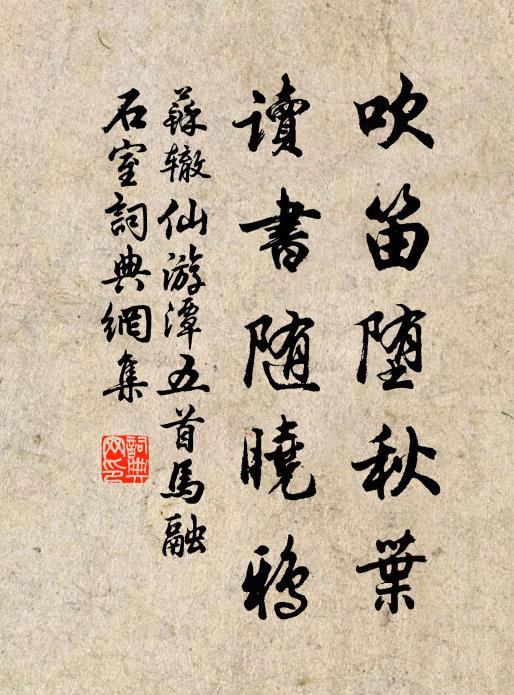 吹笛堕秋葉
讀書随曉鴉
蘇轍仙游潭五首馬融
石室詞典網集
詞典网印